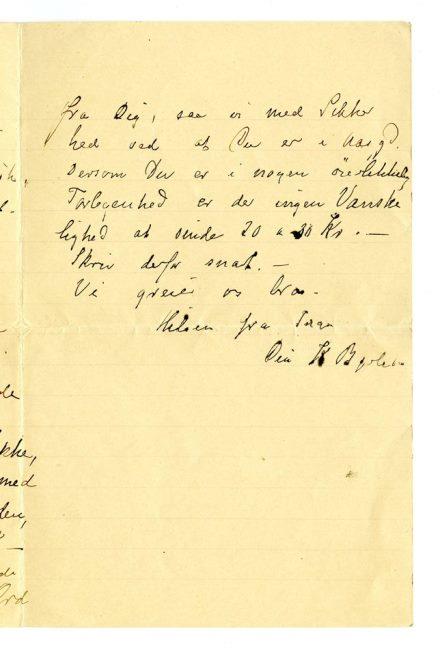 fra Dig, saa vi med Sikker
hed ved at Du er i
Dersom Du er i nogen öieblikkelig
Forlegenhed er der ingen Vanske
lighed at sende 20 a 30 Kr. —
Skriv derfor snat. —
Vi greier os bra.
Hilsen fra
Din
kke,
med
den,
de
Ord